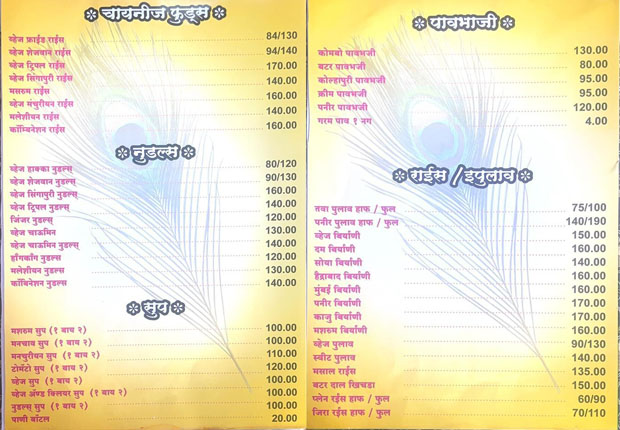 चायनीज फुड्स
व्हेज फ्राईड राईस 84/130
व्हेज शेजवान राईस 94/140
व्हेज ट्रिपल राईस 170.00
व्हेज सिंगापुरी राईस 140.00
मसरुम राईस 160.00
व्हेज मंचुरीयन राईस 140.00
मलेशीयन राईस 140.00
कॉम्बिनेशन राईस 160.00
नुडल्स
व्हेज हाक्का नुडल्स् 80/120
व्हेज शेजवान नुडल्स् 90/130
व्हेज सिंगापुरी नुडल्स् 160.00
व्हेज ट्रिपल नुडल्स् 140.00
जिंजर नुडल्स् 120.00
व्हेज चाऊमिन 130.00
व्हेज चाऊमिन नुडल्स् 140.00
हाँगकाँग नुडल्स् 120.00
मलेशीयन नुडल्स् 130.00
कॉबिनेशन नुडल्स् 140.00
सुप
मशरुम सुप (१ बाय २) 100.00
मनचाव सुप (१ बाय २) 100.00
मनचुरीयन सुप (१ बाय २) 110.00
टोमॅटो सुप (१ बाय २) 120.00
व्हेज सुप (१ बाय २) 100.00
व्हेज अॅण्ड क्लियर सुप (१ बाय २) 100.00
नुडल्स् सुप (१ बाय २) 100.00
पाणी बॉटल 20.00
पावभाजी
कोमबो पावभजी 130.00
बटर पावभजी 80.00
कोल्हापुरी पावभजी 95.00
क्रीम पावभजी 95.00
पनीर पावभजी 120.00
गरम पाव १ नग 4.00
राईस /इपुलाव
तवा पुलाव हाफ / फुल 75/100
पनीर पुलाव हाफ / फुल 140/190
व्हेज बिर्याणी 150.00
दम बिर्याणी 160.00
सोया बिर्याणी 140.00
हैद्राबाद बिर्याणी 160.00
मुंबई बिर्याणी 160.00
पनीर बिर्याणी 170.00
काजु बिर्याणी 170.00
मशरुम बिर्याणी 160.00
व्हेज पुलाव 90/130
स्वीट पुलाव 140.00
मसाल राईस 135.00
बटर दाल खिचडा 150.00
प्लेन राईस हाफ / फुल 60/90
जिरा राईस हाफ / फुल 70/110